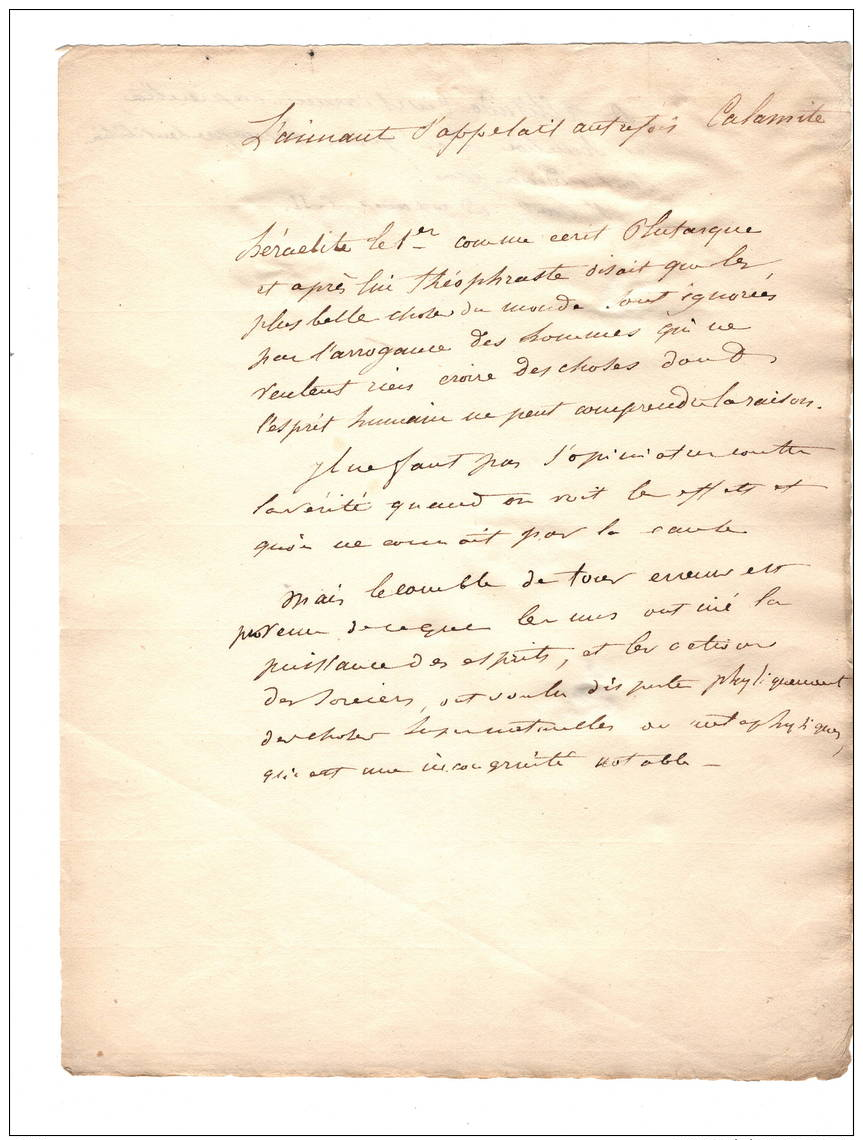 L'aimant s'appelait autrefois Calamite
héraclite le 1er comme ecrit Plutarque
et après lui théophraste disait que les
plus belle chose du monde sont ignorées
par l'arrogance des hommes qui ne
veulent rien croire des choses dond
l'esprit humain ne peut comprendre la raison.
Il ne faut pas s'opiniatrer contre
la vérité quand on voit les effets et
qu'on ne connait pas la cause
Mais le comble de tous erreurs est
provenu de ce que les uns ont nié la
puissance des esprits, et les actions
des sorciers, ont voulu disputer physiquement
des choses supernaturelles ou métaphysiques,
qui est une incongruité notable -